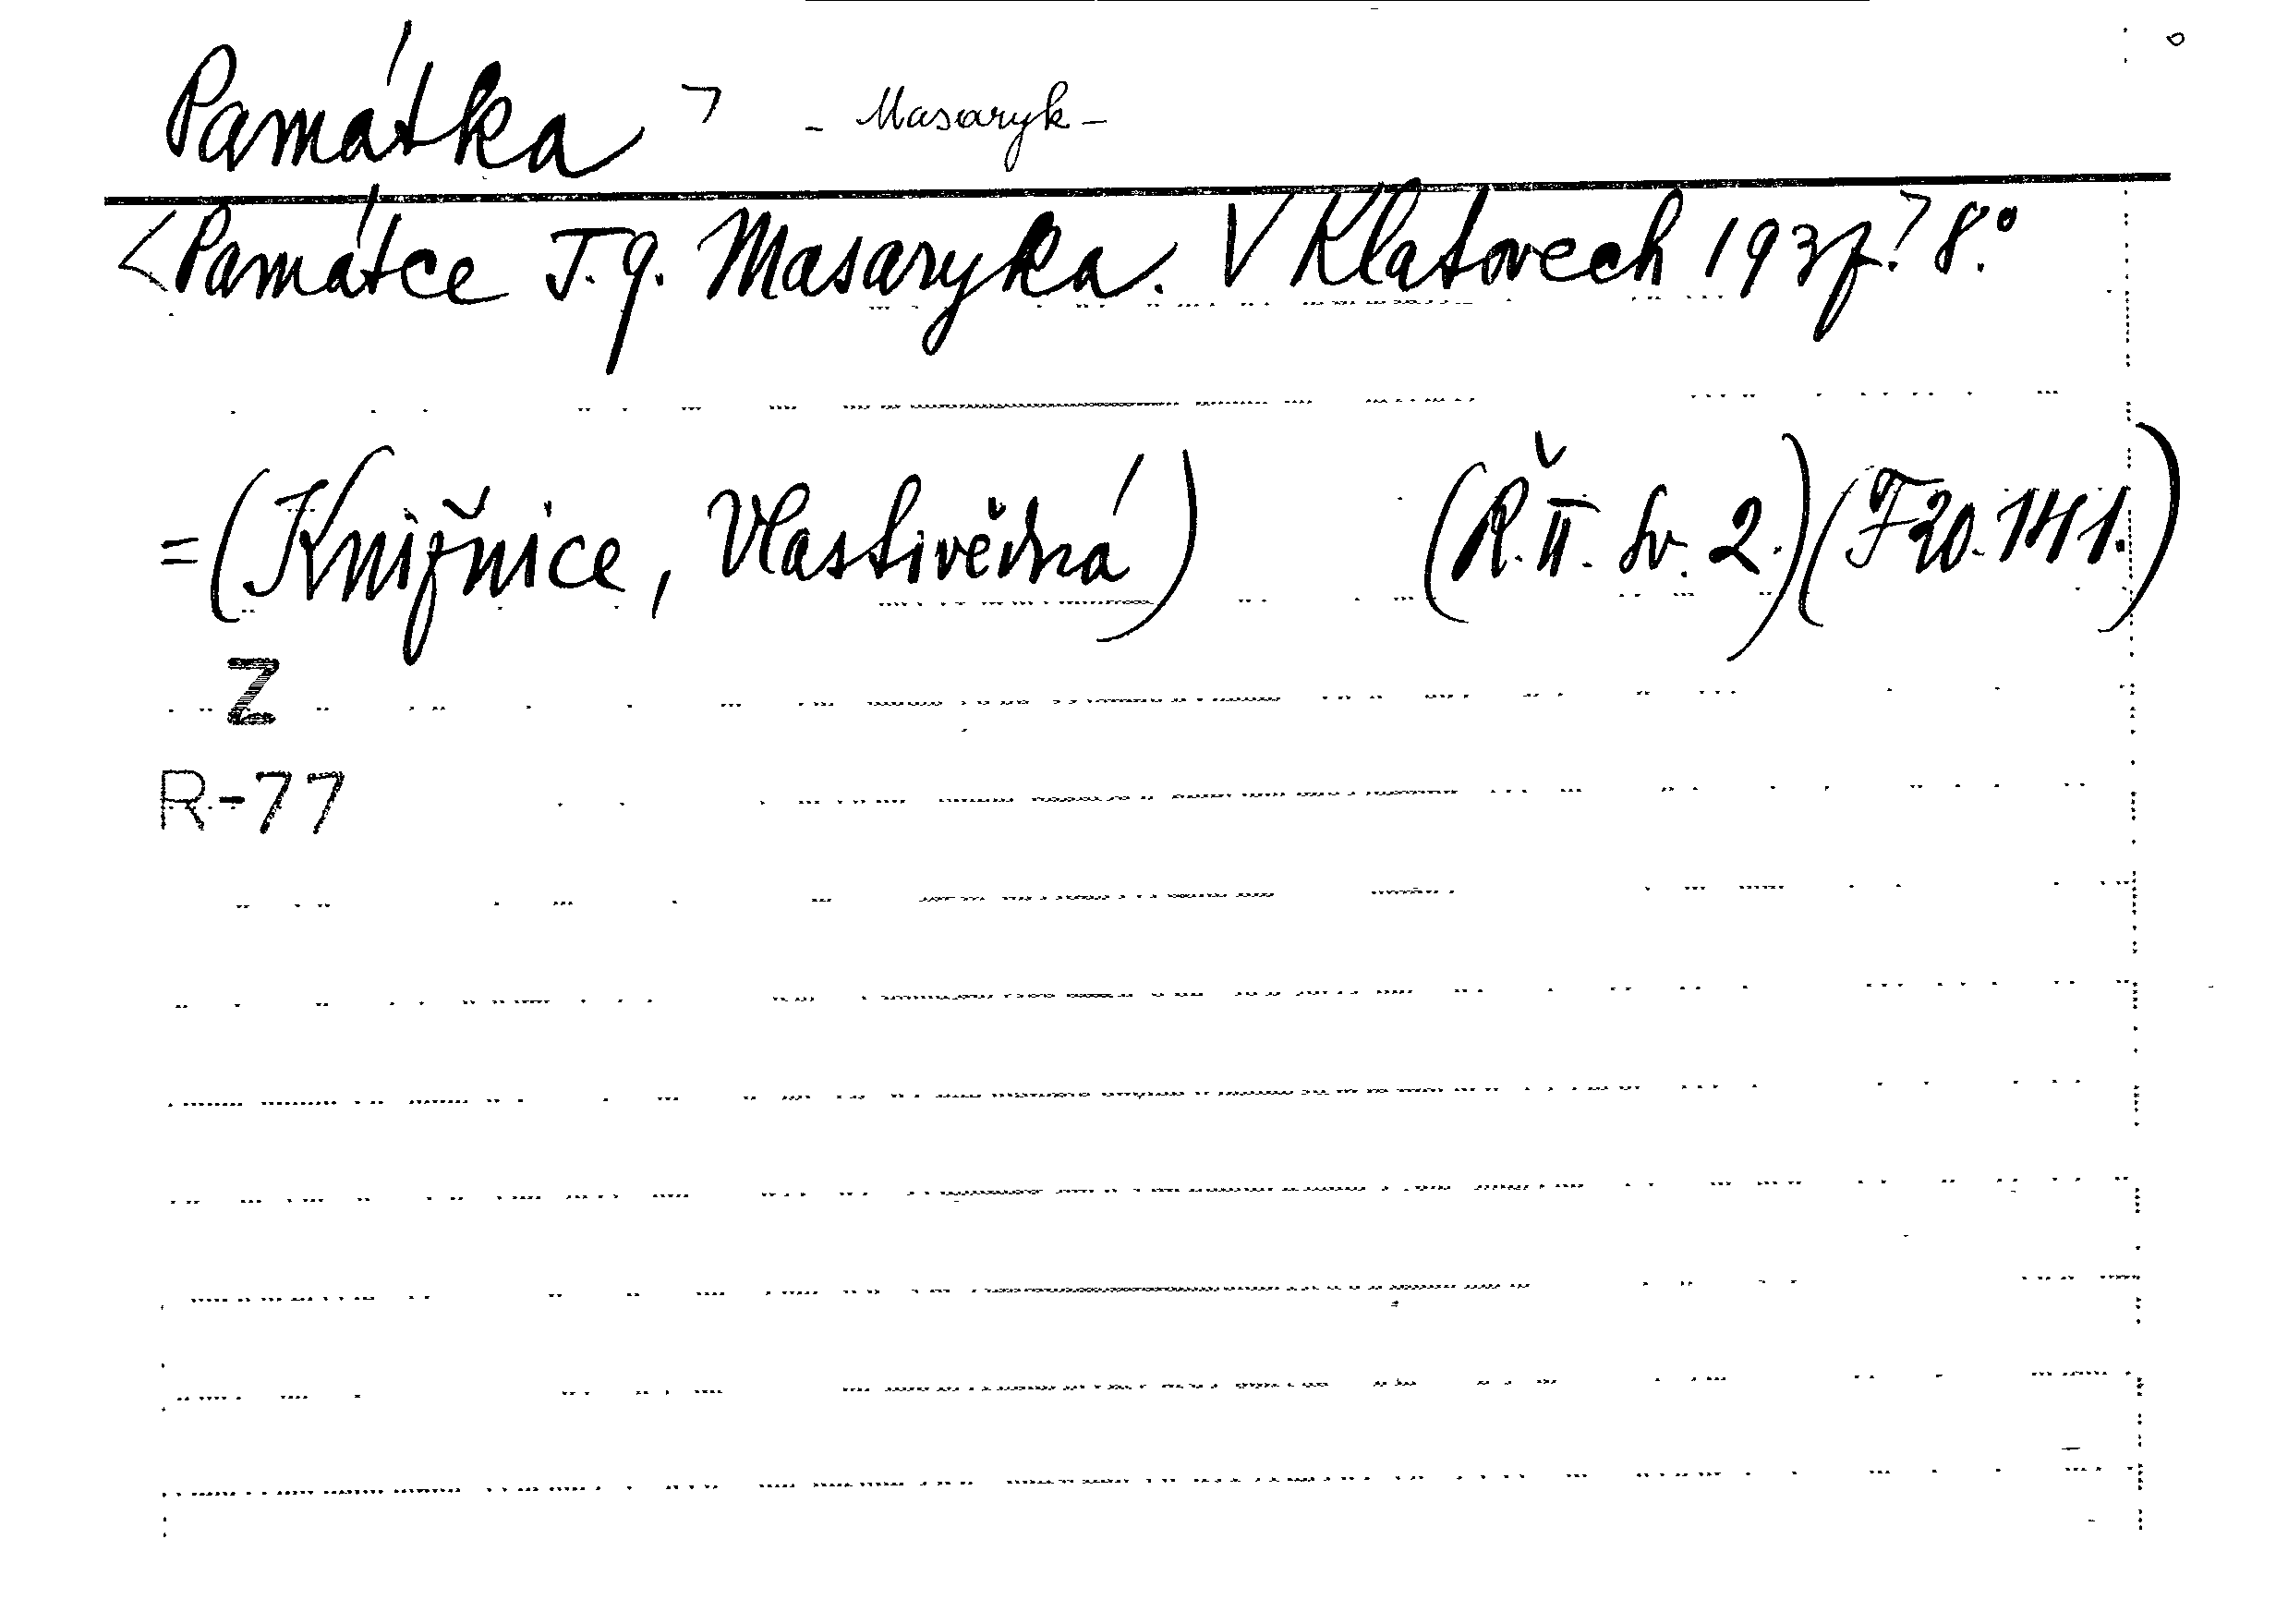 Památka ⌝ - Masaryk -
<Památce T. G. Masaryka. V Klatovech 1937.⌝ 8.°
=(Knižnice, Vlastivědná) (Ř. II. Sv. 2.) (F 20.141.)
Z
R-77